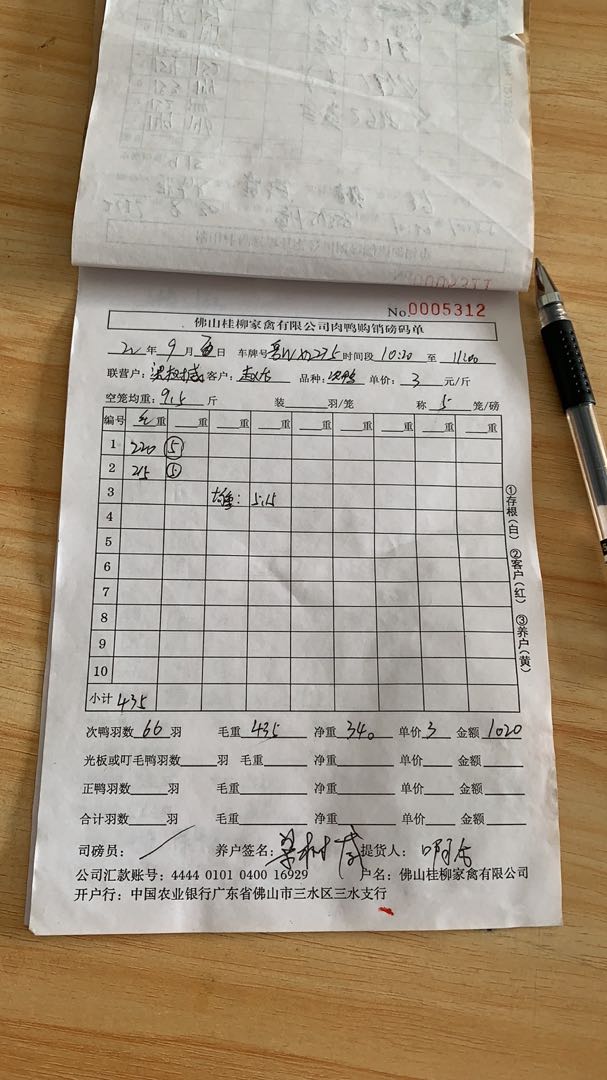 No.0005312
佛山桂柳家禽有限公司肉鸭购销磅码单
年 9 月 日 车牌号 时间段 10:20 至 11:00
联营户: 客户: 品种: 单价: 3 元/斤
空笼均重: 9.5 斤 装 羽/笼 称 5 笼/磅
编号 毛重 重 重 重 重 重 重 重
1 220 5
2 215 5
3 均重: 5.15
4
5
6
7
8
9
10
小计 435
次鸭羽数 66 羽 毛重 435 净重 340 单价 3 金额 1020
光板或叮毛鸭羽数 羽 毛重 净重 单价 金额
正鸭羽数 羽 毛重 净重 单价 金额
合计羽数 羽 毛重 净重 单价 金额
司磅员: 养户签名: 提货人:
公司汇款账号: 4444 0101 0400 16929 户名: 佛山桂柳家禽有限公司
开户行: 中国农业银行广东省佛山市三水区三水支行
①存根(白) ②客户(红) ③养户(黄)